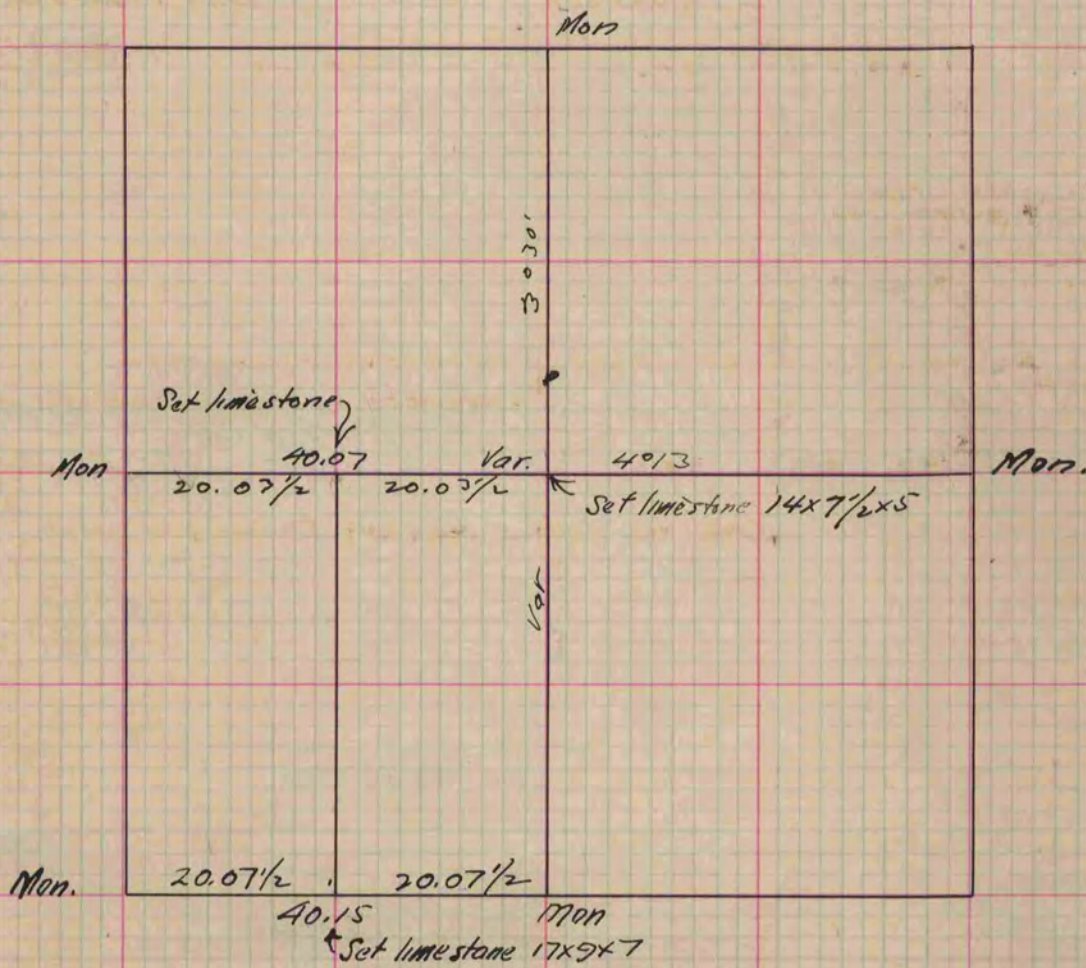 Mon
3°30'
Set limestone
Mon 40.07 Var. 4°13 Mon.
20.03 1/2 20.03 1/2
Set limestone 14x7 1/2x5
Var
Mon. 20.07 1/2 20.07 1/2
40.15 Mon
Set limestone 17x9x7